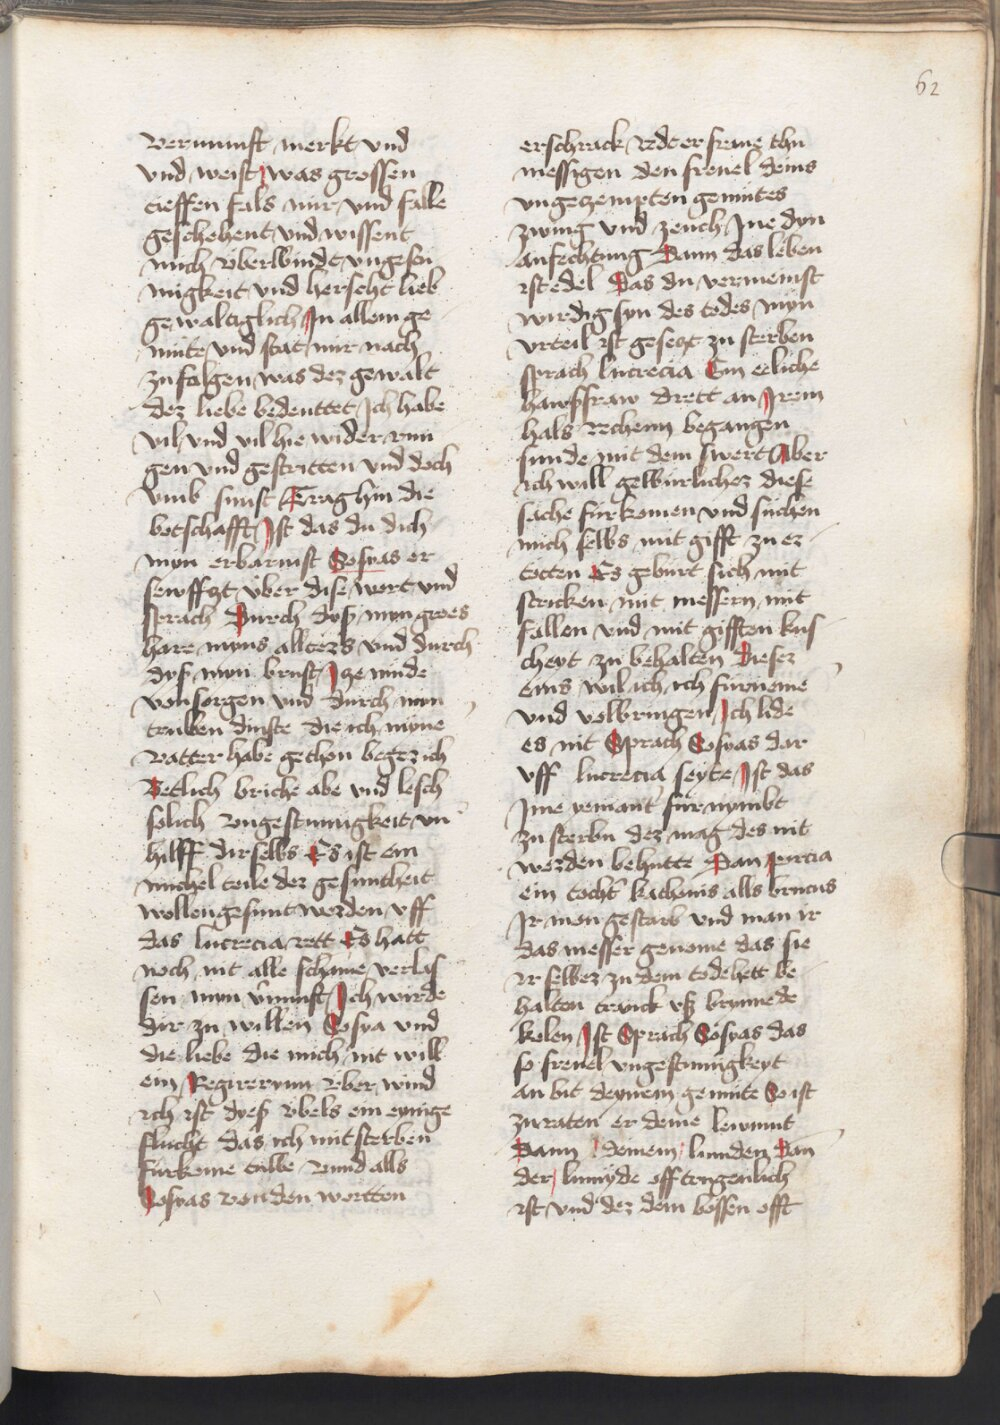 62
vernunft merkt und
und weist was grossen
tieffen fals mir und falle
geschehent und wissent
mich überwindt ungesty
migkeit und herscht lieb
gewaltiglich In allem ge
müte und stat mir nach
zu folgen was der gewalt
der liebe bedeuttet Ich habe
vil und vil hie wider run
gen und gestritten und doch
umb sunst Trag hin die
botschafft Ist das du dich
myn erbarmst Sosyas er
sewffzt über dise wort und
sprach Durch dyß myn groes
hare myns allters und durch
dyß myn brust Ize müde
von sorgen und durch myn
truwen dinste die ich myne
vatter habe gethon beger ich
Betlich briche abe und lesch
solich ungestumigkeit un
hilff dir selbs Es ist ein
michel teile der gesuntheit
wollen gesunt werden uff
das lucrecia rett Es hatt
noch nit alle schame verlas
sen myn vernunft Ich wirde
dir zu willen Sosya und
die liebe die mich nit will
ein Regirerynn über wind
ich ist dyeß übels ein eynige
flucht das ich mit sterben
fürkome tülbe vnnd alls
Sosyas von den wortten
erschrack Redt er frawe thu
messigen den frevel deins
ungezempten gemütes
zwing und zeuch Ine dyn
anfechtung Dann das leben
ist edel Das du vermeinst
wirdig syn des todes myn
urteil ist geseczt zu sterben
sprach lucrecia Ein eeliche
hawßfraw drett an Irem
hals rechenn begangen
sunde mit dem swert Aber
ich will gelbürlicher diese
sache fürkomen und suchen
mich selbs mit gifft zu er
totten Es gebürt sich mit
stricken mit messern mit
fallen und mit gifften kus
cheyt zu behalten Dieser
eins wil ich ich fürneme
und volbringen Ich lide
es nit Sprach Sosyas dar
uff lucrecia seyte Ist das
Ime yemant fürnymbt
zu sterbn der mag des nit
werden behütte Dan porcia
ein tocht kathonis alls brutus
Ir mon gestarb und man ir
das messer genome das sie
ir selber zu dem tode hett be
halten tranck uß brynnede
kolen Ist Sprach Sosyas das
so frevel ungestumigkeyt
an bit deynem gemüte So ist
zu raten er deine lewmut
Dann deinem lumden Dan
der lumyde offt trugenlich
ist und der dem bossen offt